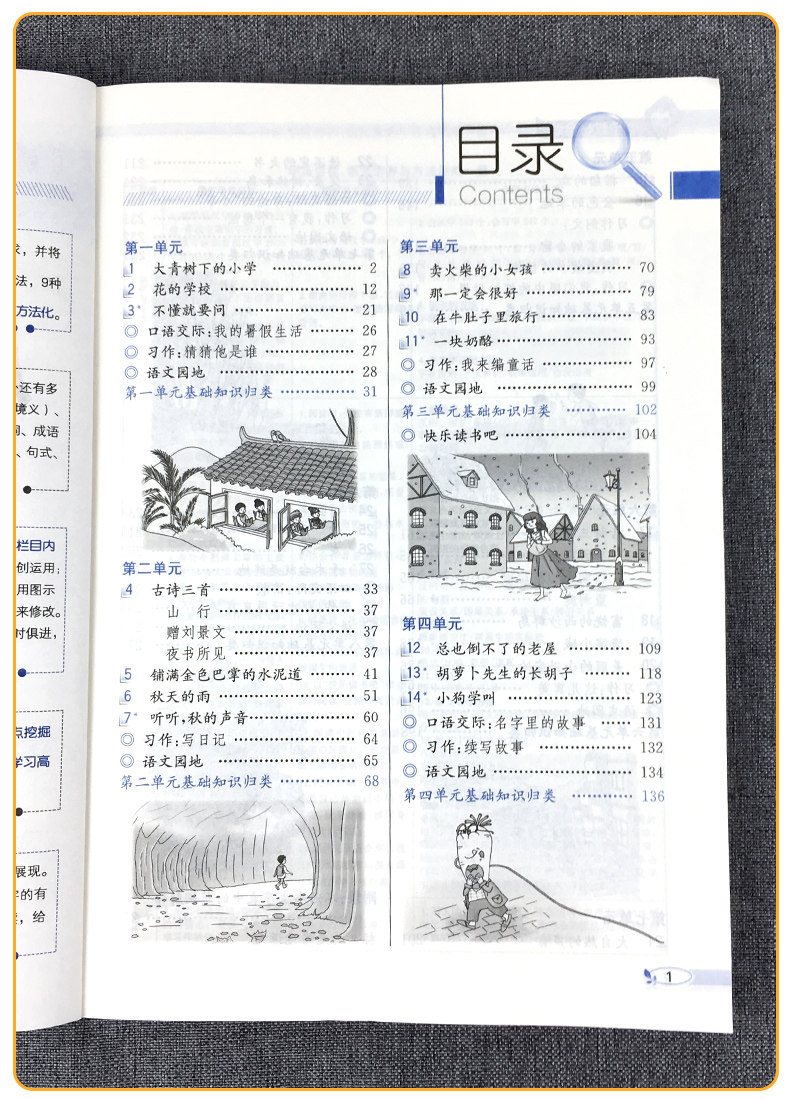 求，并将
法，9种
方法化。
外还有多
境义）、
词、成语
、句式、
栏目内
创运用；
用图示
来修改。
时俱进，
点挖掘
学习高
展现。
字的有
，给
目录
Contents
第一单元
1 大青树下的小学 ············ 2
2 花的学校 ············ 12
3* 不懂就要问 ············ 21
◎ 口语交际:我的暑假生活 ······ 26
◎ 习作:猜猜他是谁 ············ 27
◎ 语文园地 ············ 28
第一单元基础知识归类 ············ 31
第二单元
4 古诗三首 ············ 33
山 行 ············ 37
赠刘景文 ············ 37
夜书所见 ············ 37
5 铺满金色巴掌的水泥道 ······ 41
6 秋天的雨 ············ 51
7* 听听,秋的声音 ············ 60
◎ 习作:写日记 ············ 64
◎ 语文园地 ············ 65
第二单元基础知识归类 ············ 68
第三单元
8 卖火柴的小女孩 ············ 70
9* 那一定会很好 ············ 79
10 在牛肚子里旅行 ············ 83
11* 一块奶酪 ············ 93
◎ 习作:我来编童话 ············ 97
◎ 语文园地 ············ 99
第三单元基础知识归类 ············ 102
◎ 快乐读书吧 ············ 104
第四单元
12 总也倒不了的老屋 ········· 109
13* 胡萝卜先生的长胡子 ······ 118
14* 小狗学叫 ············ 123
◎ 口语交际:名字里的故事 ······ 131
◎ 习作:续写故事 ············ 132
◎ 语文园地 ············ 134
第四单元基础知识归类 ············ 136
1